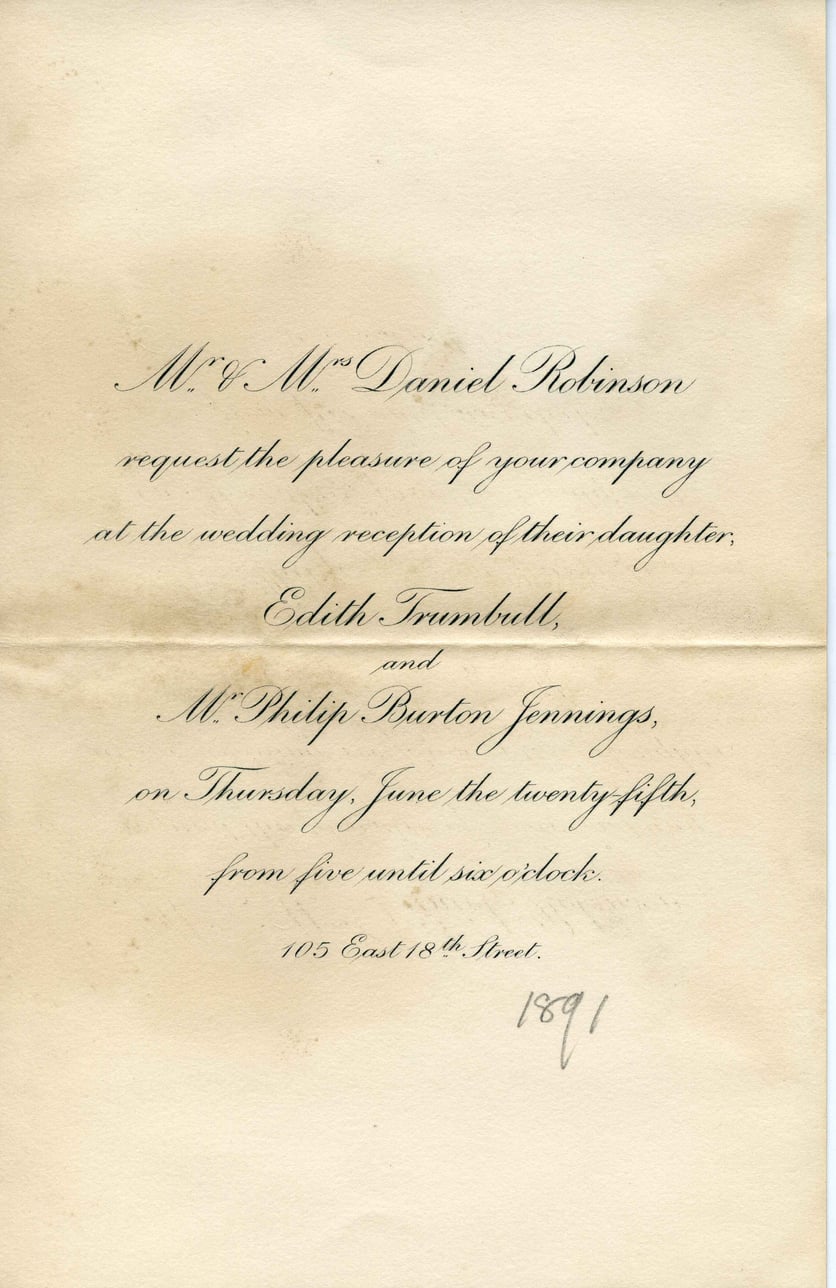 Mr. & Mrs. Daniel Robinson
request the pleasure of your company
at the wedding reception of their daughter,
Edith Trumbull,
and
Mr. Philip Burton Jennings,
on Thursday, June the twenty-fifth,
from five until six o'clock.
105 East 18th Street.
1891